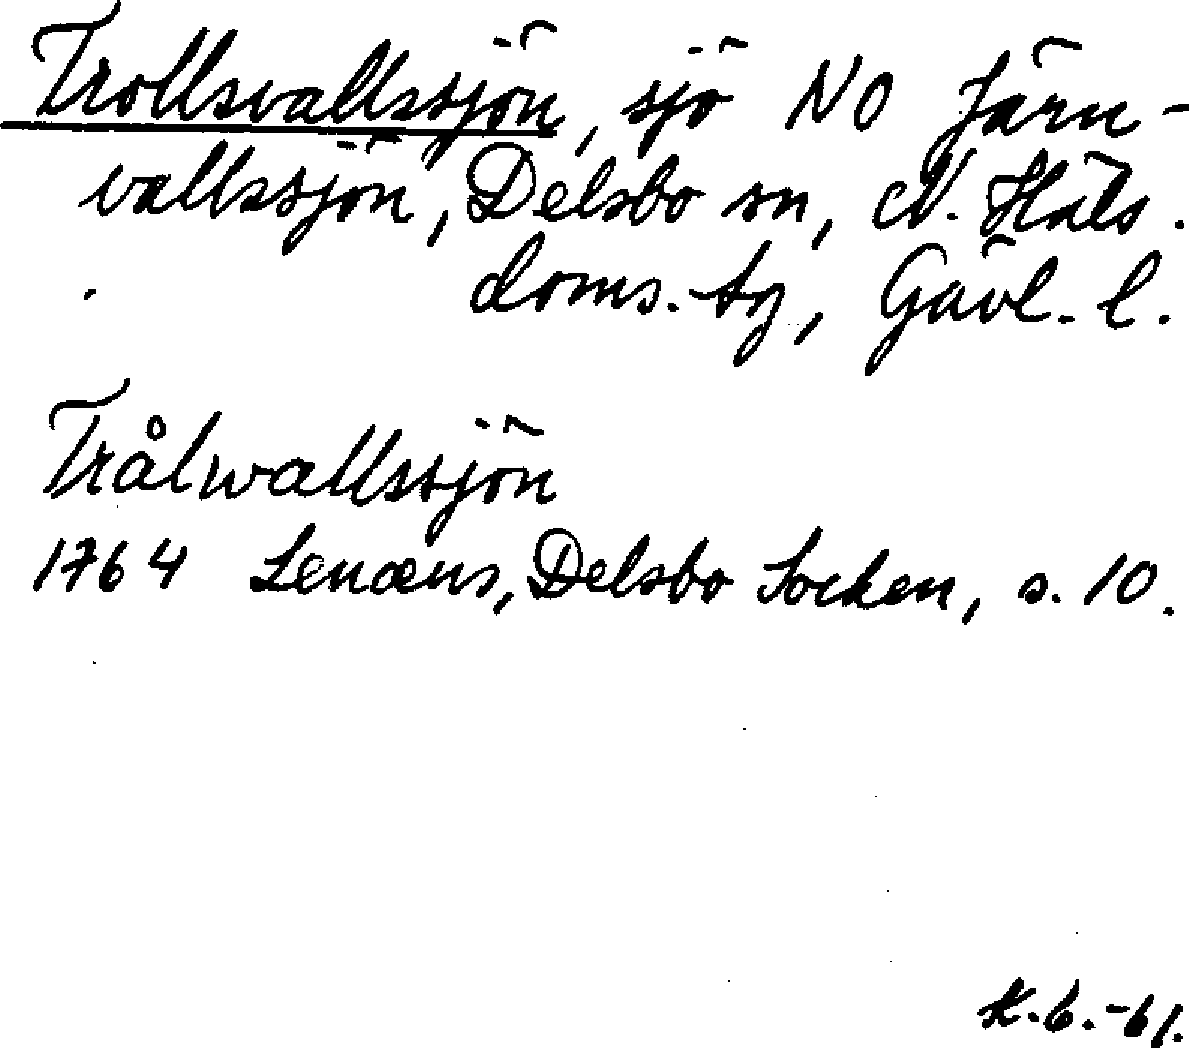 Trollsvallssjön, sjö NO Järn-
vallssjön, Delsbo sn, N. Häls.
doms.-tg, Gävl. l.
Trålwallssjön
1764 Lenæus, Delsbo Socken, s. 10.
K.G.-61.